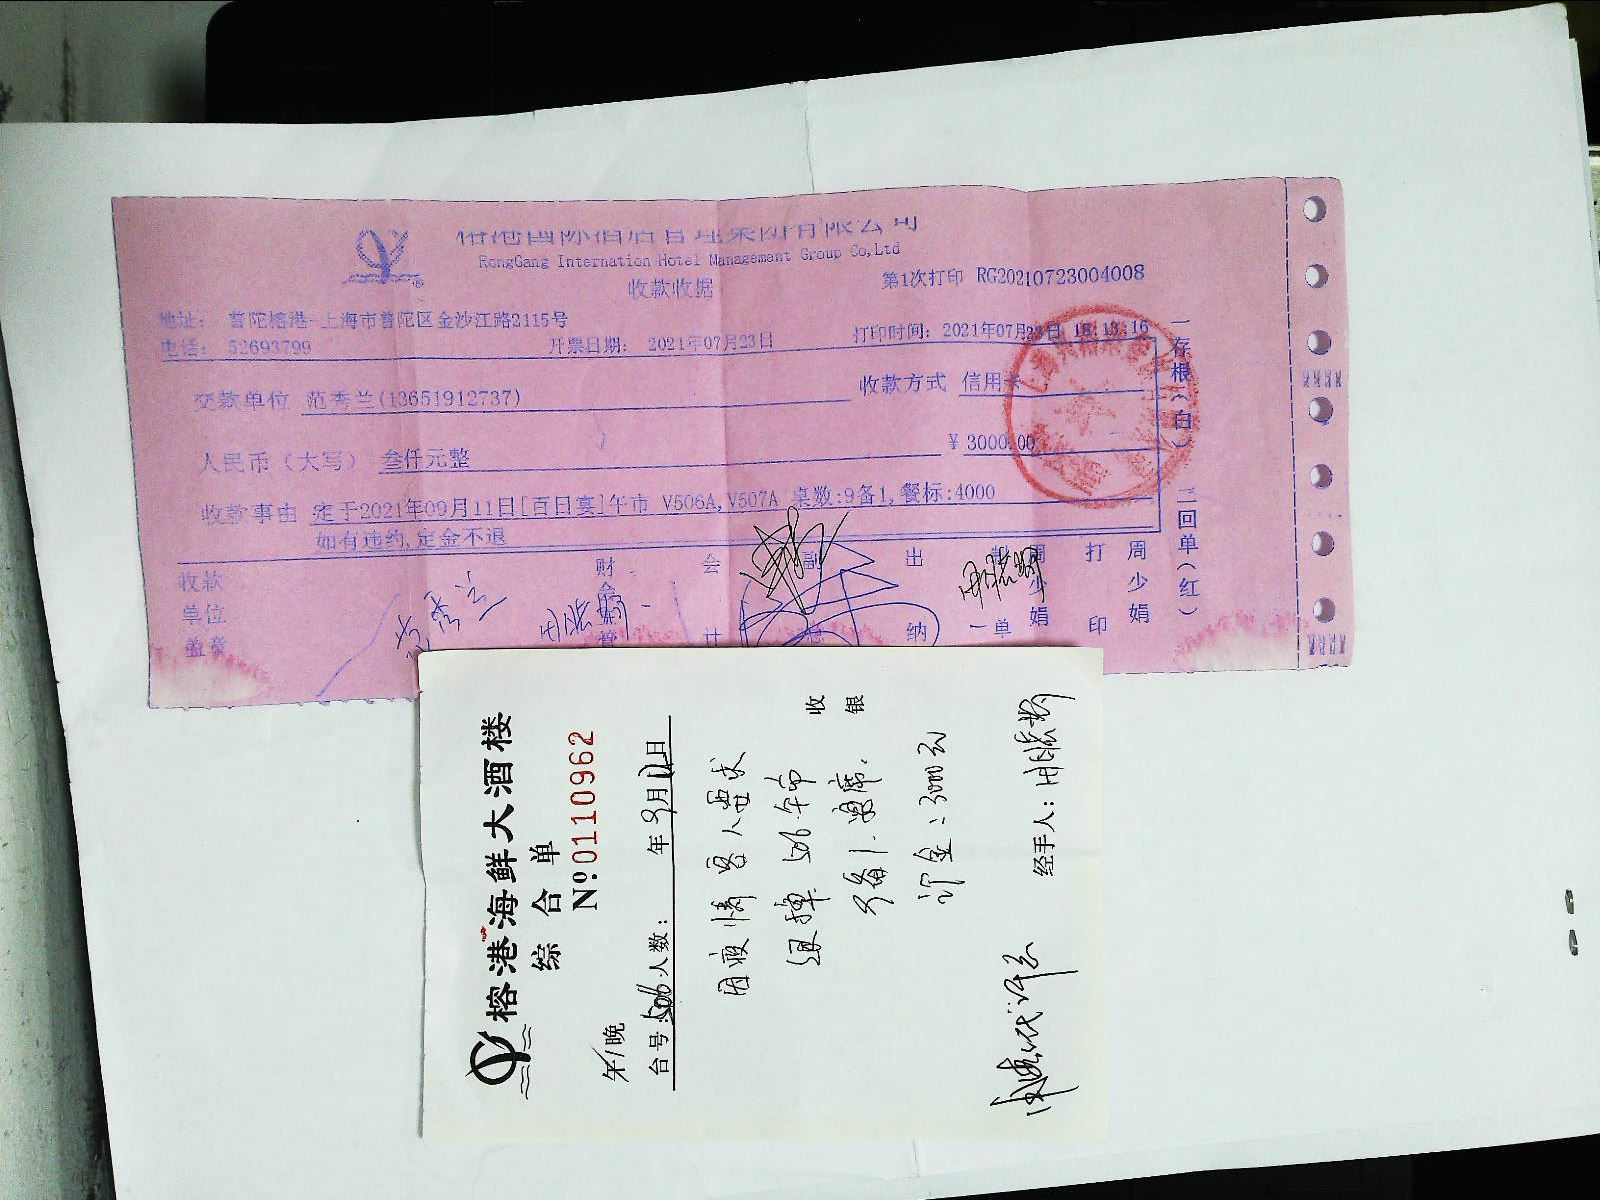 榕港国际酒店管理集团有限公司
RongGang Internation Hotel Management Group Co,Ltd
收款收据
第1次打印 RG20210723004008
地址: 普陀榕港-上海市普陀区金沙江路2115号
电话: 52693799
开票日期: 2021年07月23日
打印时间: 2021年07月23日 18:13:16
交款单位 范秀兰(13651912737)
收款方式 信用卡
人民币(大写) 叁仟元整
¥ 3000.00
收款事由 定于2021年09月11日[百日宴]午市 V506A,V507A 桌数:9备1,餐标:4000
如有违约,定金不退
收款单位盖章
财会主管
会计
副总
出纳
制单 周少娟
打印 周少娟
一存根(白)
二回单(红)
榕港海鲜大酒楼
综合单
Nº:0110962
午/晚
台号:506 人数: 年9月11日
因疫情 客人要求
退掉 506 午市
9备1.宴席.
订金:3000元
收银
经手人: